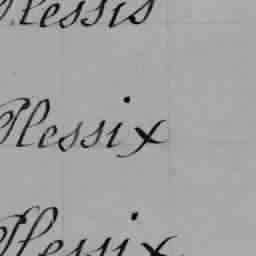 Plessis
Plessix
Plessix